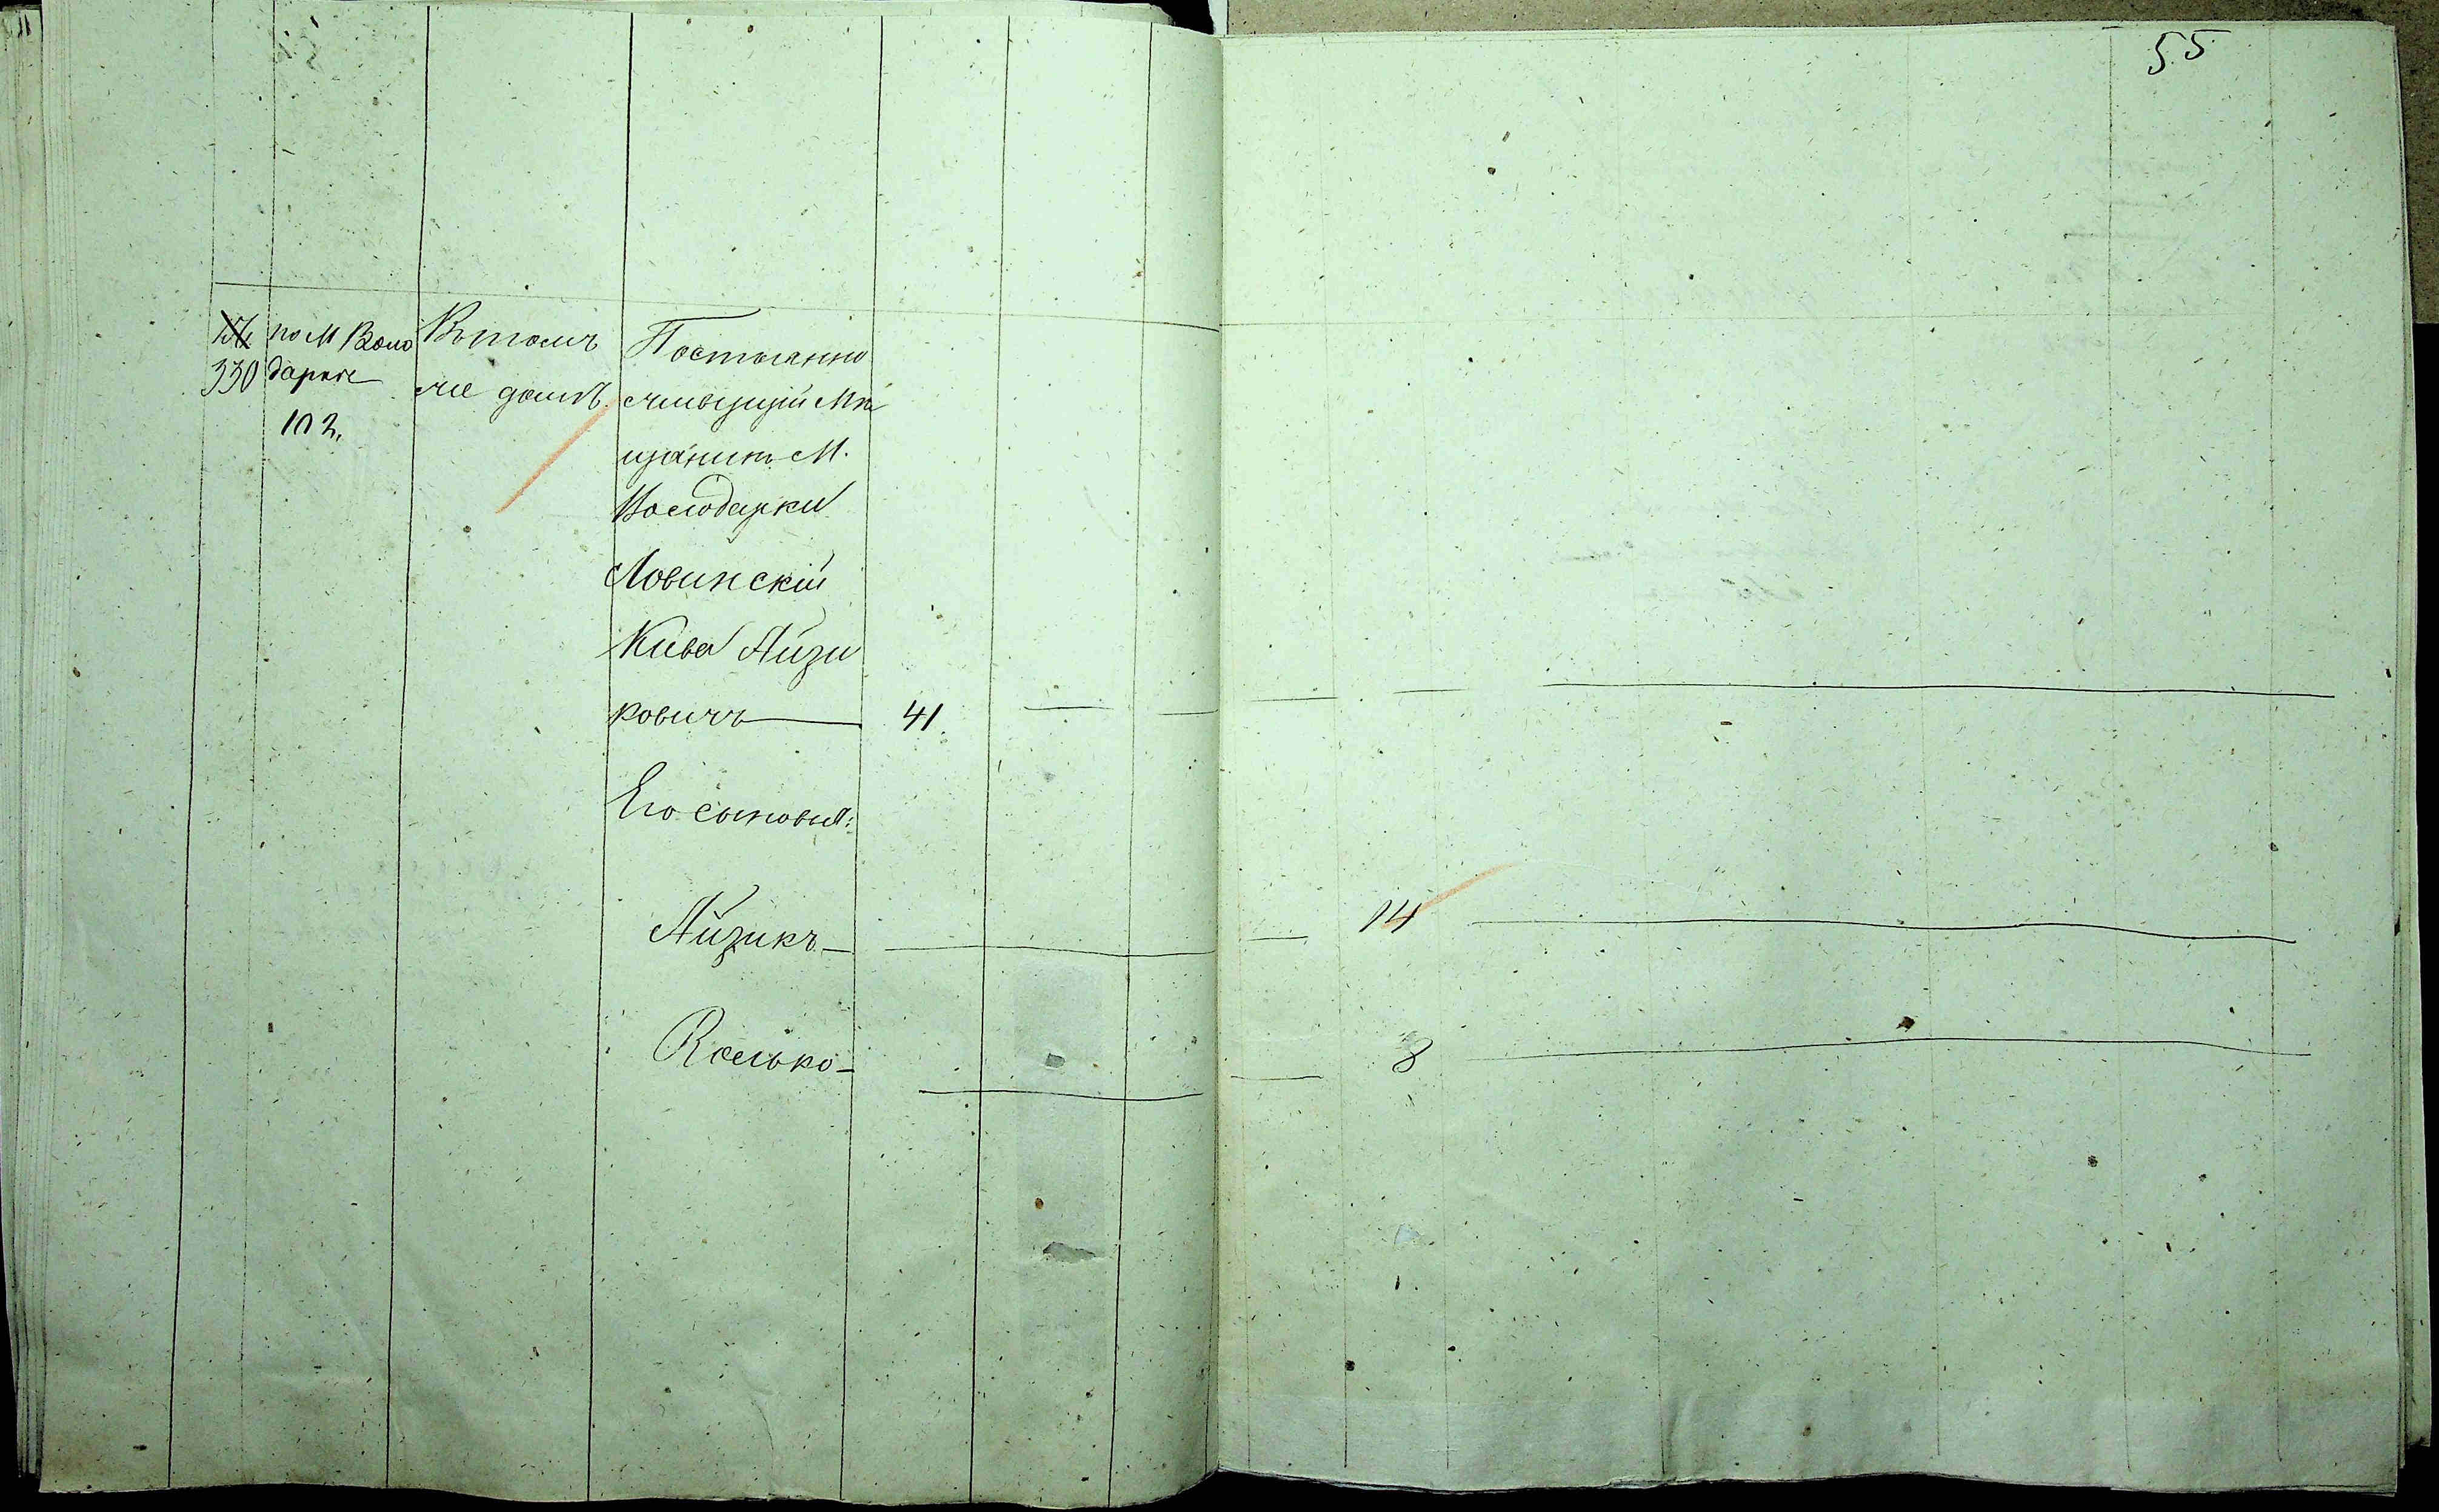 55
330
по М Воло
дарке
102.
Въ томъ
же домѣ
Постоянно
живущій Мѣ
щанинъ М.
Володарки
Ловинскій
Кива Айзи
ковичъ 41.
Его сыновья:
Айзикъ 14
8